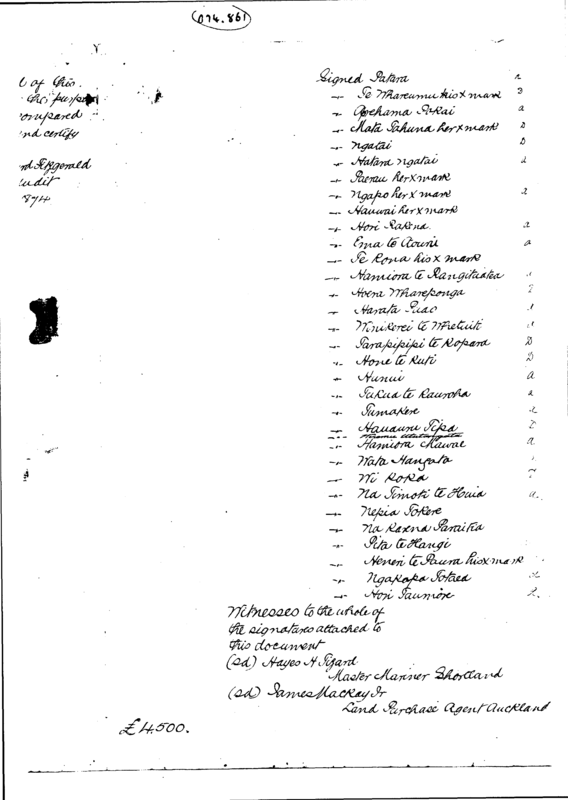 074.861
l of this
this purpose
ompared
nd certify
rd Fitzgerald
udit
874
Signed Patara a
— Te Whareumu his x mark
— Pukai a
— Mata Pahuna her x mark D
— Ngatai D
— Hatara Ngatai
— Paerau her x mark
— Ngapo her x mark
— Hauwai her x mark
— Hori a
— Ema te a
— Te Rona his x mark
— Hamiora te Rangituatea
— Hoera Whareponga
— Harata
— te
— Parapipipi te Ropara D
— Hone te Ruti D
— Hunui a
— Tukua te Rauroha a
— Tumakere
— Hauauru Tipa
— Hamiora Mawae a
— Wata Hangata
— Wi Koka
— Na Timoti te Huia a.
— Nepia Tokere
— Na Paraika
— Pita te Hangi
— te Paura his x mark
— Ngakapa
— Hori Taumore
Witnesses to the whole of
the signatures attached to
this document
(sd) Hayes H
Master Mariner Shortland
(sd) James Mackay Jr
Land Purchase Agent Auckland
£4,500.